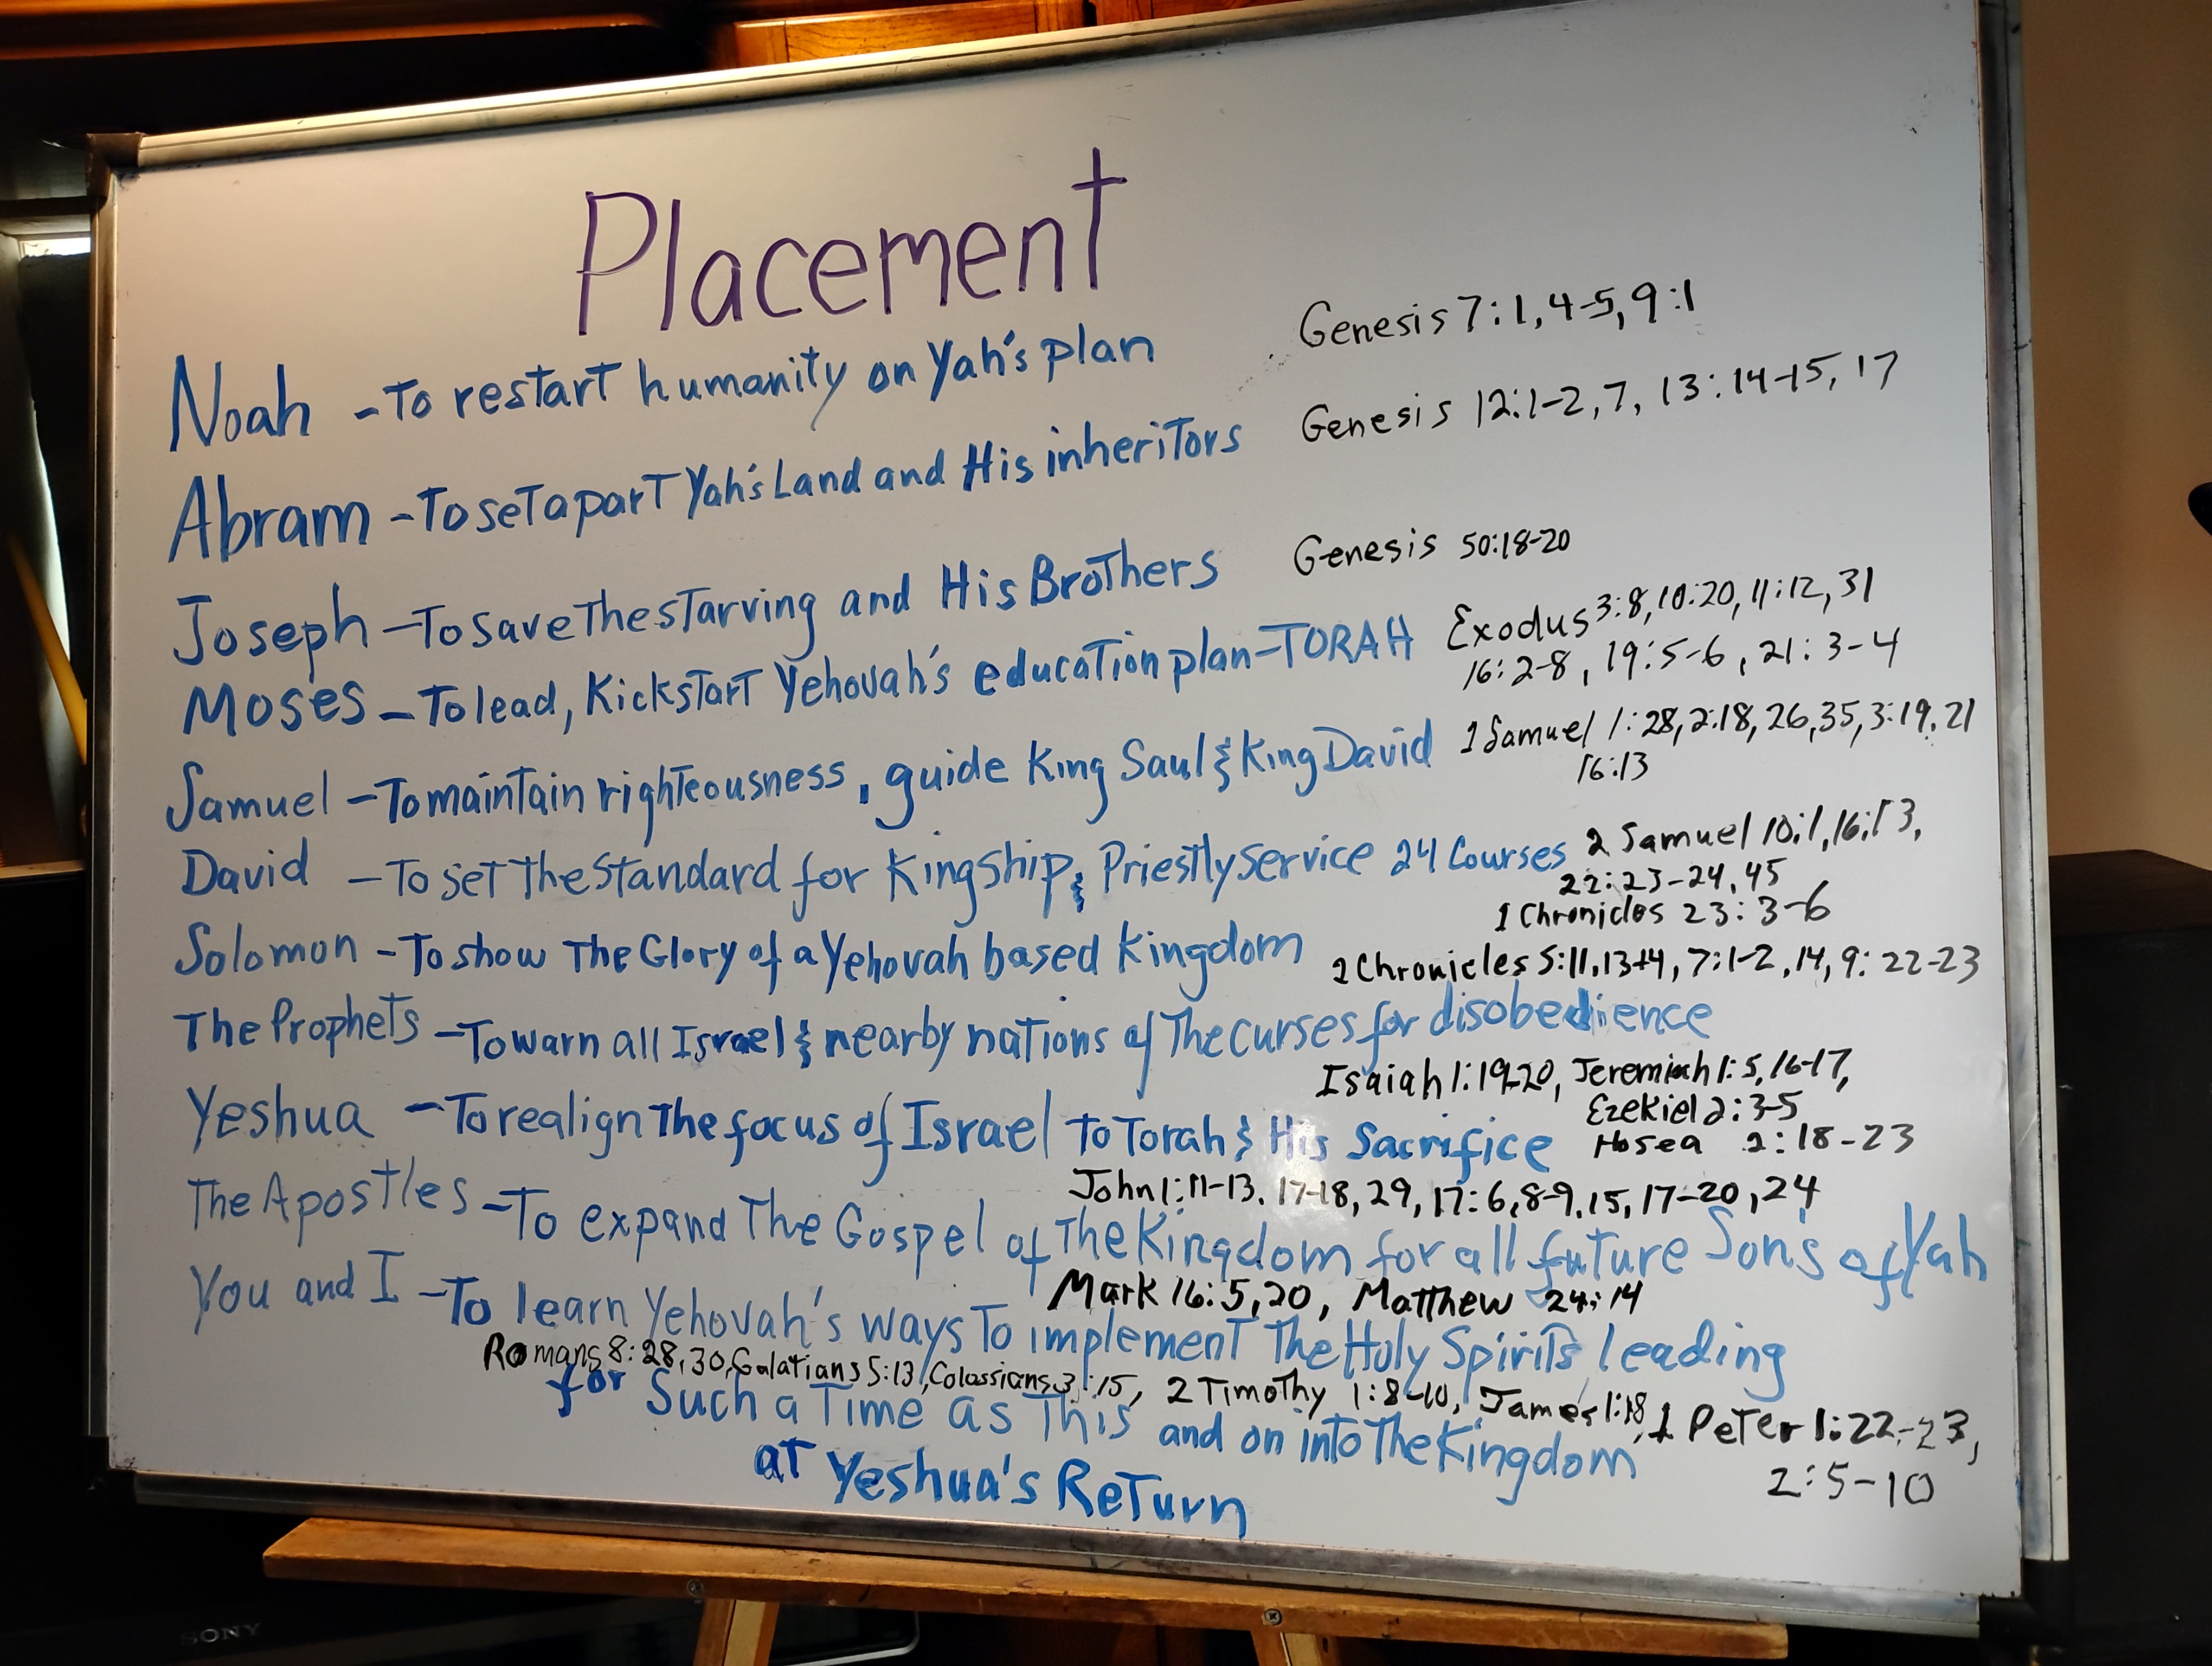 Placement
Noah - To restart humanity on Yah's plan Genesis 7:1, 4-5, 9:1
Abram - To set apart Yah's Land and His inheritors Genesis 12:1-2, 7, 13:14-15, 17
Joseph - To save the starving and His Brothers Genesis 50:18-20
Moses - To lead, Kickstart Yehovah's education plan - TORAH Exodus 3:8, 10:20, 11:12, 31
16:2-8, 19:5-6, 21:3-4
Samuel - To maintain righteousness, guide King Saul & King David 1 Samuel 1:28, 2:18, 26, 35, 3:19, 21
16:13
David - To set the standard for Kingship & Priestly Service 24 Courses 2 Samuel 10:1, 16:13,
22:23-24, 45
1 Chronicles 23:3-6
Solomon - To show The Glory of a Yehovah based Kingdom 2 Chronicles 5:11, 13+4, 7:1-2, 14, 9:22-23
The Prophets - To warn all Israel & nearby nations of The curses for disobedience
Isaiah 1:19-20, Jeremiah 1:5, 16-17,
Ezekiel 2:3-5
Yeshua - To realign The focus of Israel To Torah & His Sacrifice Hosea 2:18-23
John 1:11-13, 17-18, 29, 17:6, 8-9, 15, 17-20, 24
The Apostles - To expand The Gospel of The Kingdom for all future Sons of Yah
Mark 16:5, 20, Matthew 24:14
You and I - To learn Yehovah's ways To implement The Holy Spirit's leading
Romans 8:28, 30, Galatians 5:13, Colossians 3:15, 2 Timothy 1:8-10, James 1:18, 1 Peter 1:22-23,
2:5-10
for Such a Time as This and on into The Kingdom
at Yeshua's Return
SONY